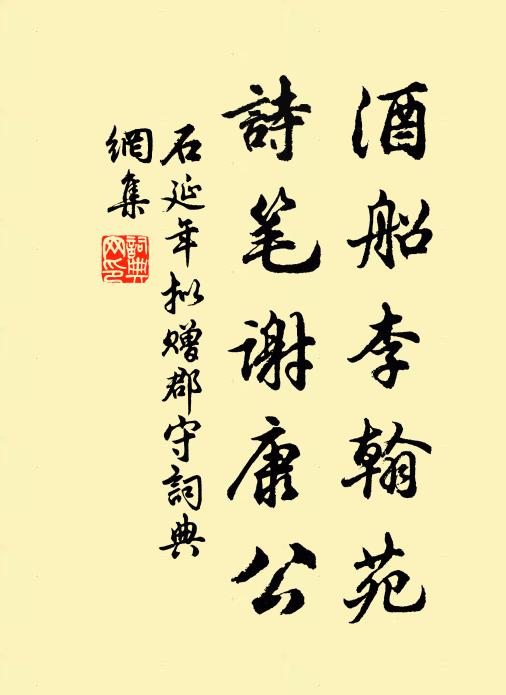 酒船李翰苑
詩笔谢康公
石延年拟赠郡守詞典
網集
詞典网印